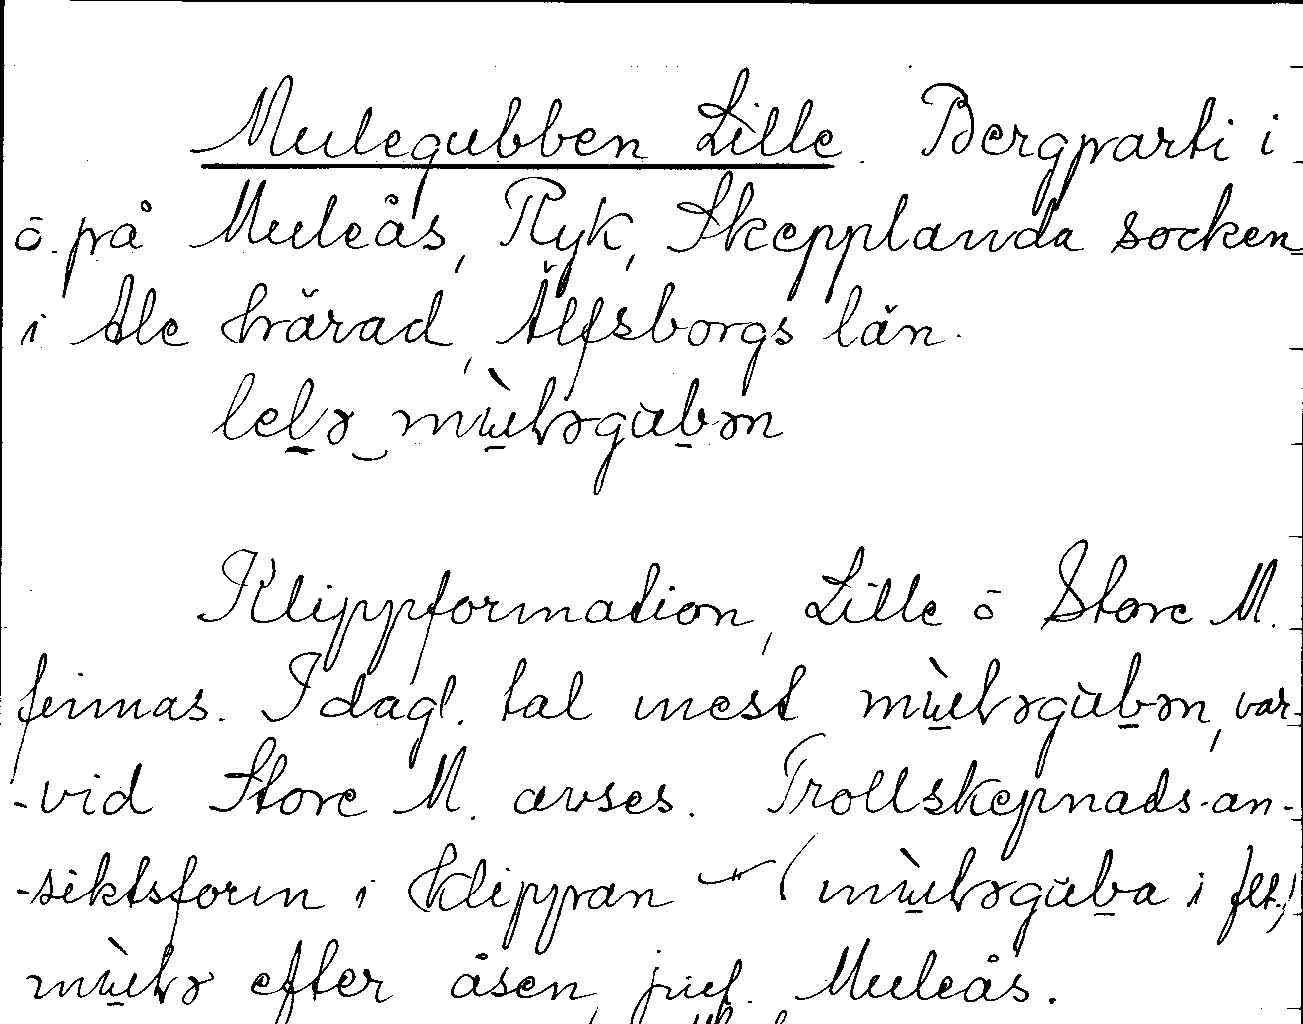 Mulegubben Lille. Bergparti i
ö. på Muleås, Ryk, Skepplanda socken
i Ale härad, Älfsborgs län.
Klippformation, Lille ö Store M.
finnas. I dagl. tal mest var-
-vid Store M. avses. Trollskepnads-an-
-siktsform i klippan ( i flt.)
efter åsen, jmf. Muleås.